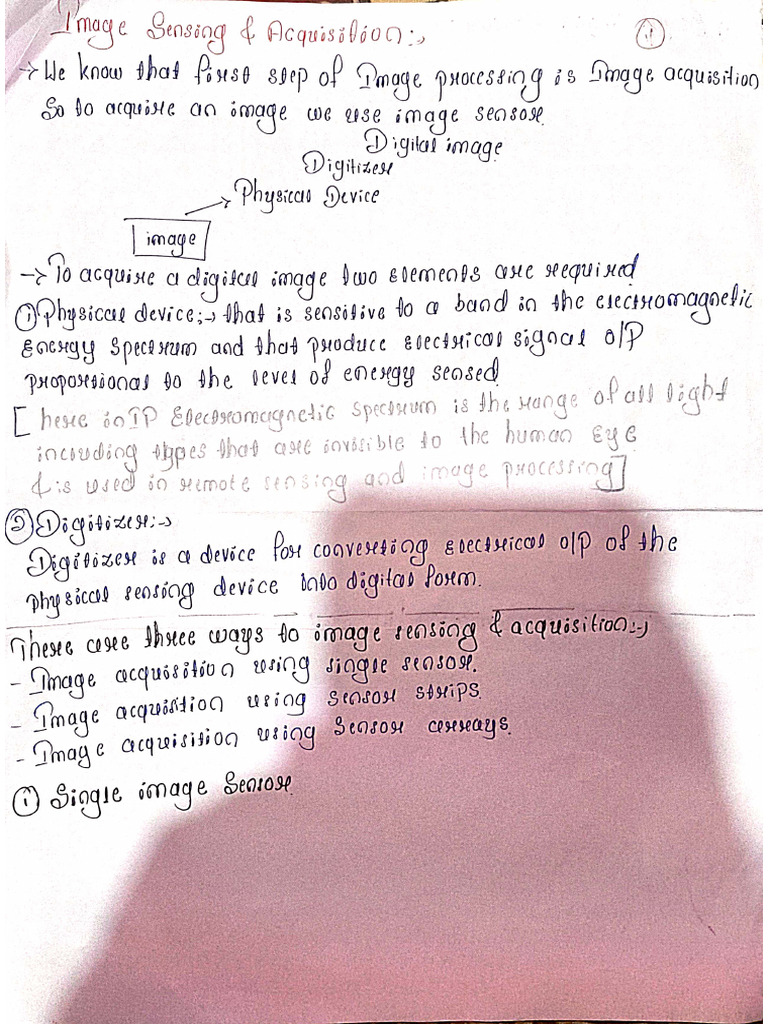 Image Sensing & Acquisition:-
1
→ We know that first step of Image processing is Image acquisition
So to acquire an image we use image sensor.
Digital image
Digitizer
→ Physical Device
image
→ To acquire a digital image two elements are required
① Physical device:→ that is sensitive to a band in the electromagnetic
Energy Spectrum and that produce Electrical signal O/P
proportional to the level of energy sensed.
[here in IP Electromagnetic Spectrum is the range of all light
including types that are invisible to the human Eye
& is used in remote sensing and image processing]
② Digitizer:→
Digitizer is a device for converting Electrical o/p of the
physical sensing device into digital form.
There are three ways to image sensing & acquisition:→
- Image acquisition using single sensor.
- Image acquisition using sensor strips.
- Image acquisition using Sensor arrays.
① Single image Sensor.